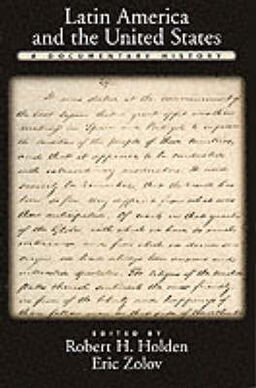 Latin America
and the United States
A DOCUMENTARY HISTORY
It was stated at the commencement of
the last session that a great effort was then
making in Spain and Portugal to improve
the condition of the people of those countries,
and that it appeared to be conducted
with extraordinary moderation. It need
scarcely be remarked, that the result has
been so far very different from what was
then anticipated. Of events in that quarter
of the Globe, with which we have so much
intercourse and from which we derive our
origin, we have always been anxious and
interested spectators. The citizens of the United
States cherish sentiments the most friendly
in favor of the liberty and happiness of
their fellow men on that side of the
EDITED BY
Robert H. Holden
Eric Zolov